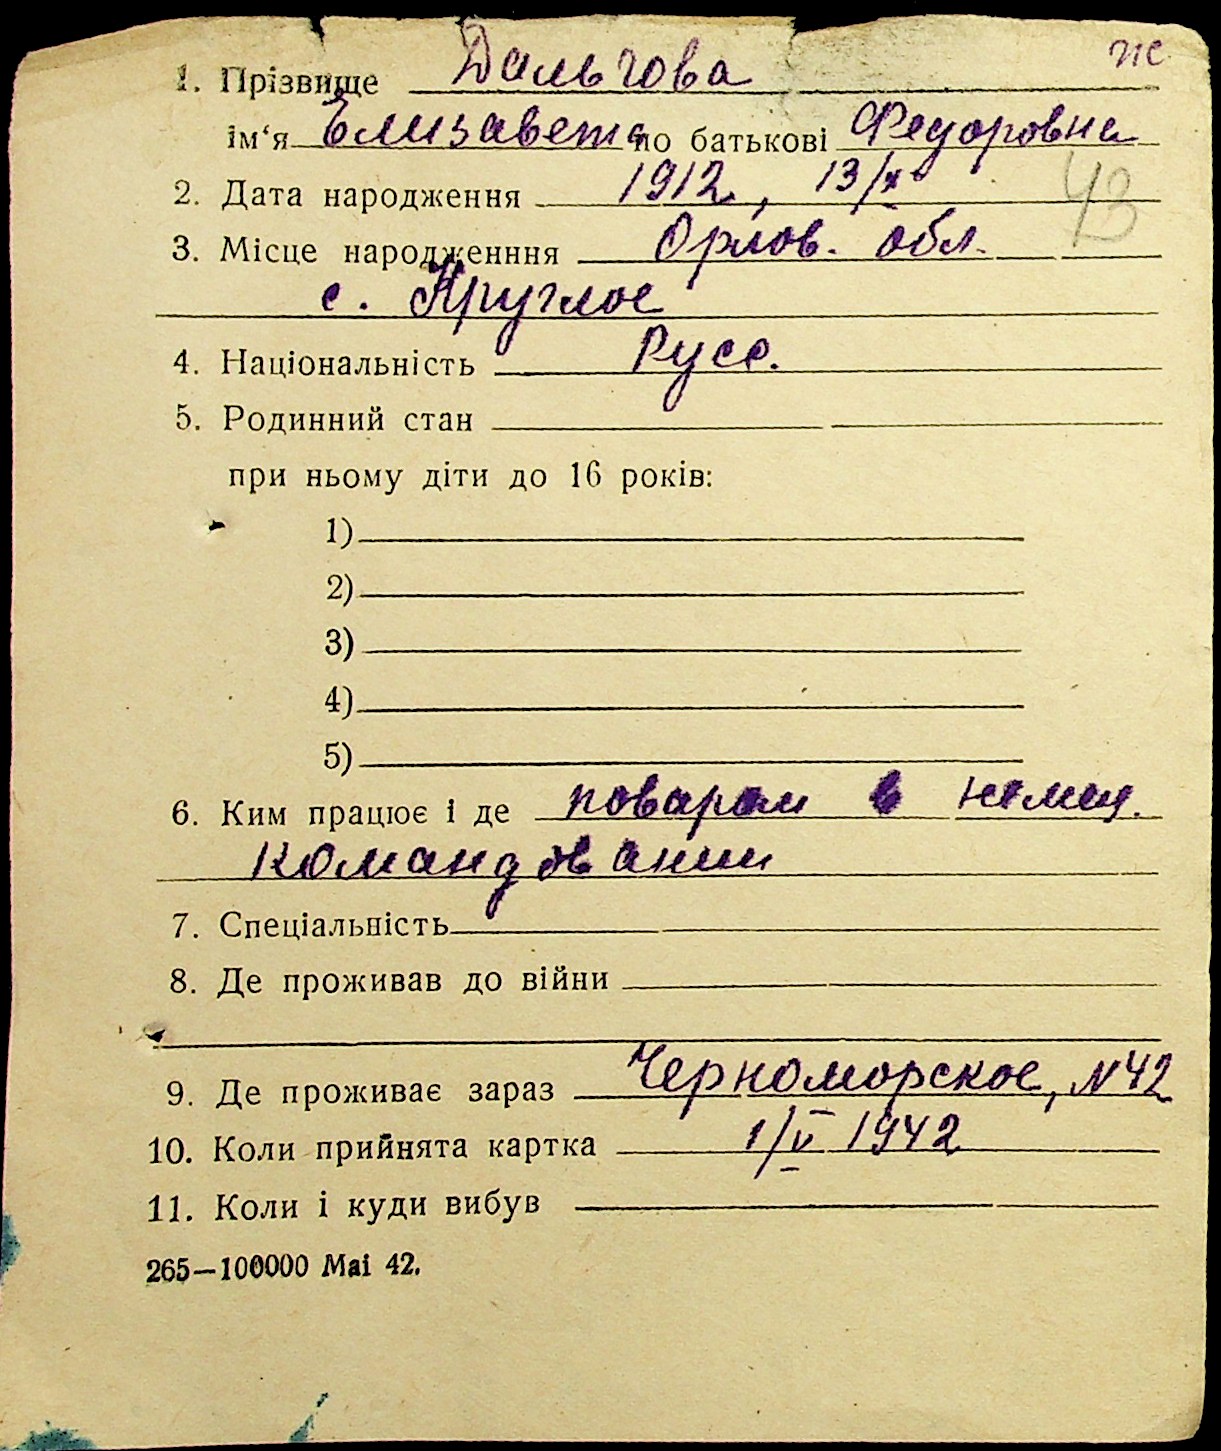 1. Прізвище Дальгова ж
ім‘я Елизавета по батькові Федоровна
2. Дата народження 1912, 13/X
43
3. Місце народженння Орлов. обл.
с. Круглое
4. Національність Русс.
5. Родинний стан
при ньому діти до 16 років:
1)
2)
3)
4)
5)
6. Ким працює і де поваром в немец.
командовании
7. Спеціальність
8. Де проживав до війни
9. Де проживає зараз Черноморское, N 42
10. Коли прийнята картка 1/V 1942
11. Коли і куди вибув
265—100000 Mai 42.